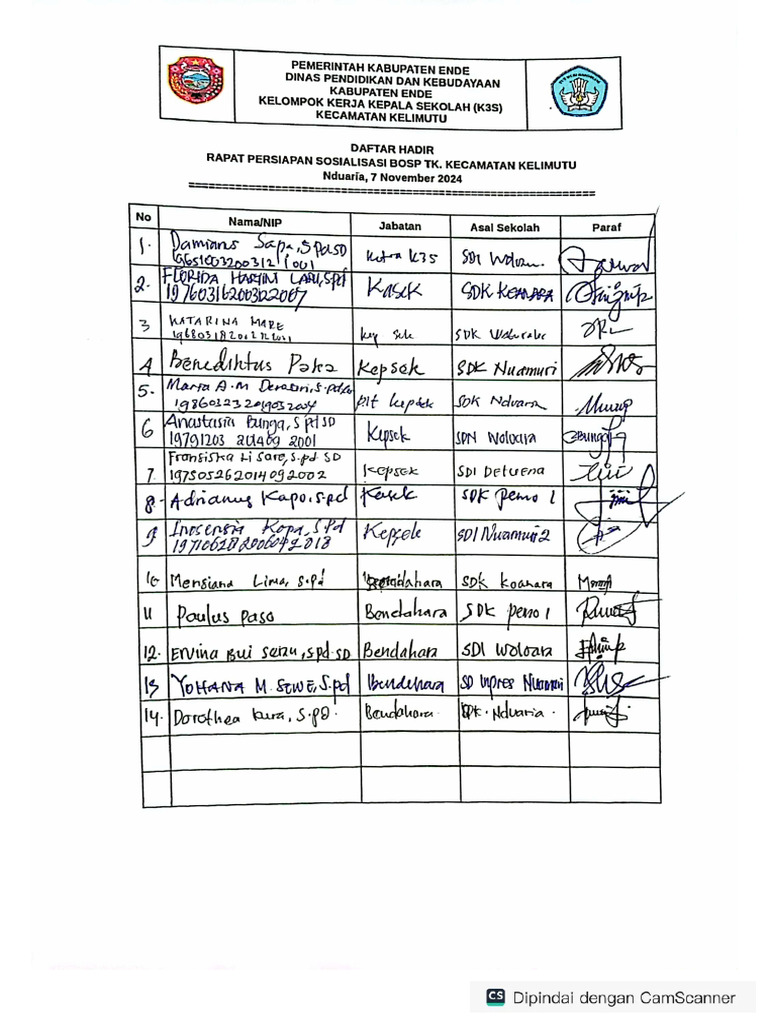 PEMERINTAH KABUPATEN ENDE
DINAS PENDIDIKAN DAN KEBUDAYAAN
KABUPATEN ENDE
KELOMPOK KERJA KEPALA SEKOLAH (K3S)
KECAMATAN KELIMUTU
DAFTAR HADIR
RAPAT PERSIAPAN SOSIALISASI BOSP TK. KECAMATAN KELIMUTU
Nduaria, 7 November 2024
No Nama/NIP Jabatan Asal Sekolah Paraf
1. Damianus Sapa, S.Pd.SD Ketua K3S SDI
2. FLORIDA HARTINI LARU, S.Pd KASEK SDK KOANARA
197603162003122007
3 KATARINA MARE SDK
4 Benediktus Paka Kepsek SDK Nuamuri
5. Maria A.M Plt kepsek SDK Nduaria
198603232019032004
6 Anastasia Bunga, S.Pd SD Kepsek SDN Woloara
19791203 201409 2001
7. Fransiska Li Sare, S.pd SD Kepsek SDI Detuena
197505262014092002
8. Adrianus Kapo, S.pd Kasek SDK pemo 1
9 Inosensia Kopa, S.Pd Kepsek SDI Nuamuri 2
10 Mensiana Lima, S.pd Bendahara SDK koanara
11 Paulus Paso Bendahara SDK pemo 1
12. ERVINA BUI, S.Pd-SD Bendahara SDI Woloara
13 YOHANA M. SEWE, S.Pd Bendahara SD Inpres Nuamuri
14. Dorothea, S.PD. Bendahara SDK. Nduaria.
CS Dipindai dengan CamScanner